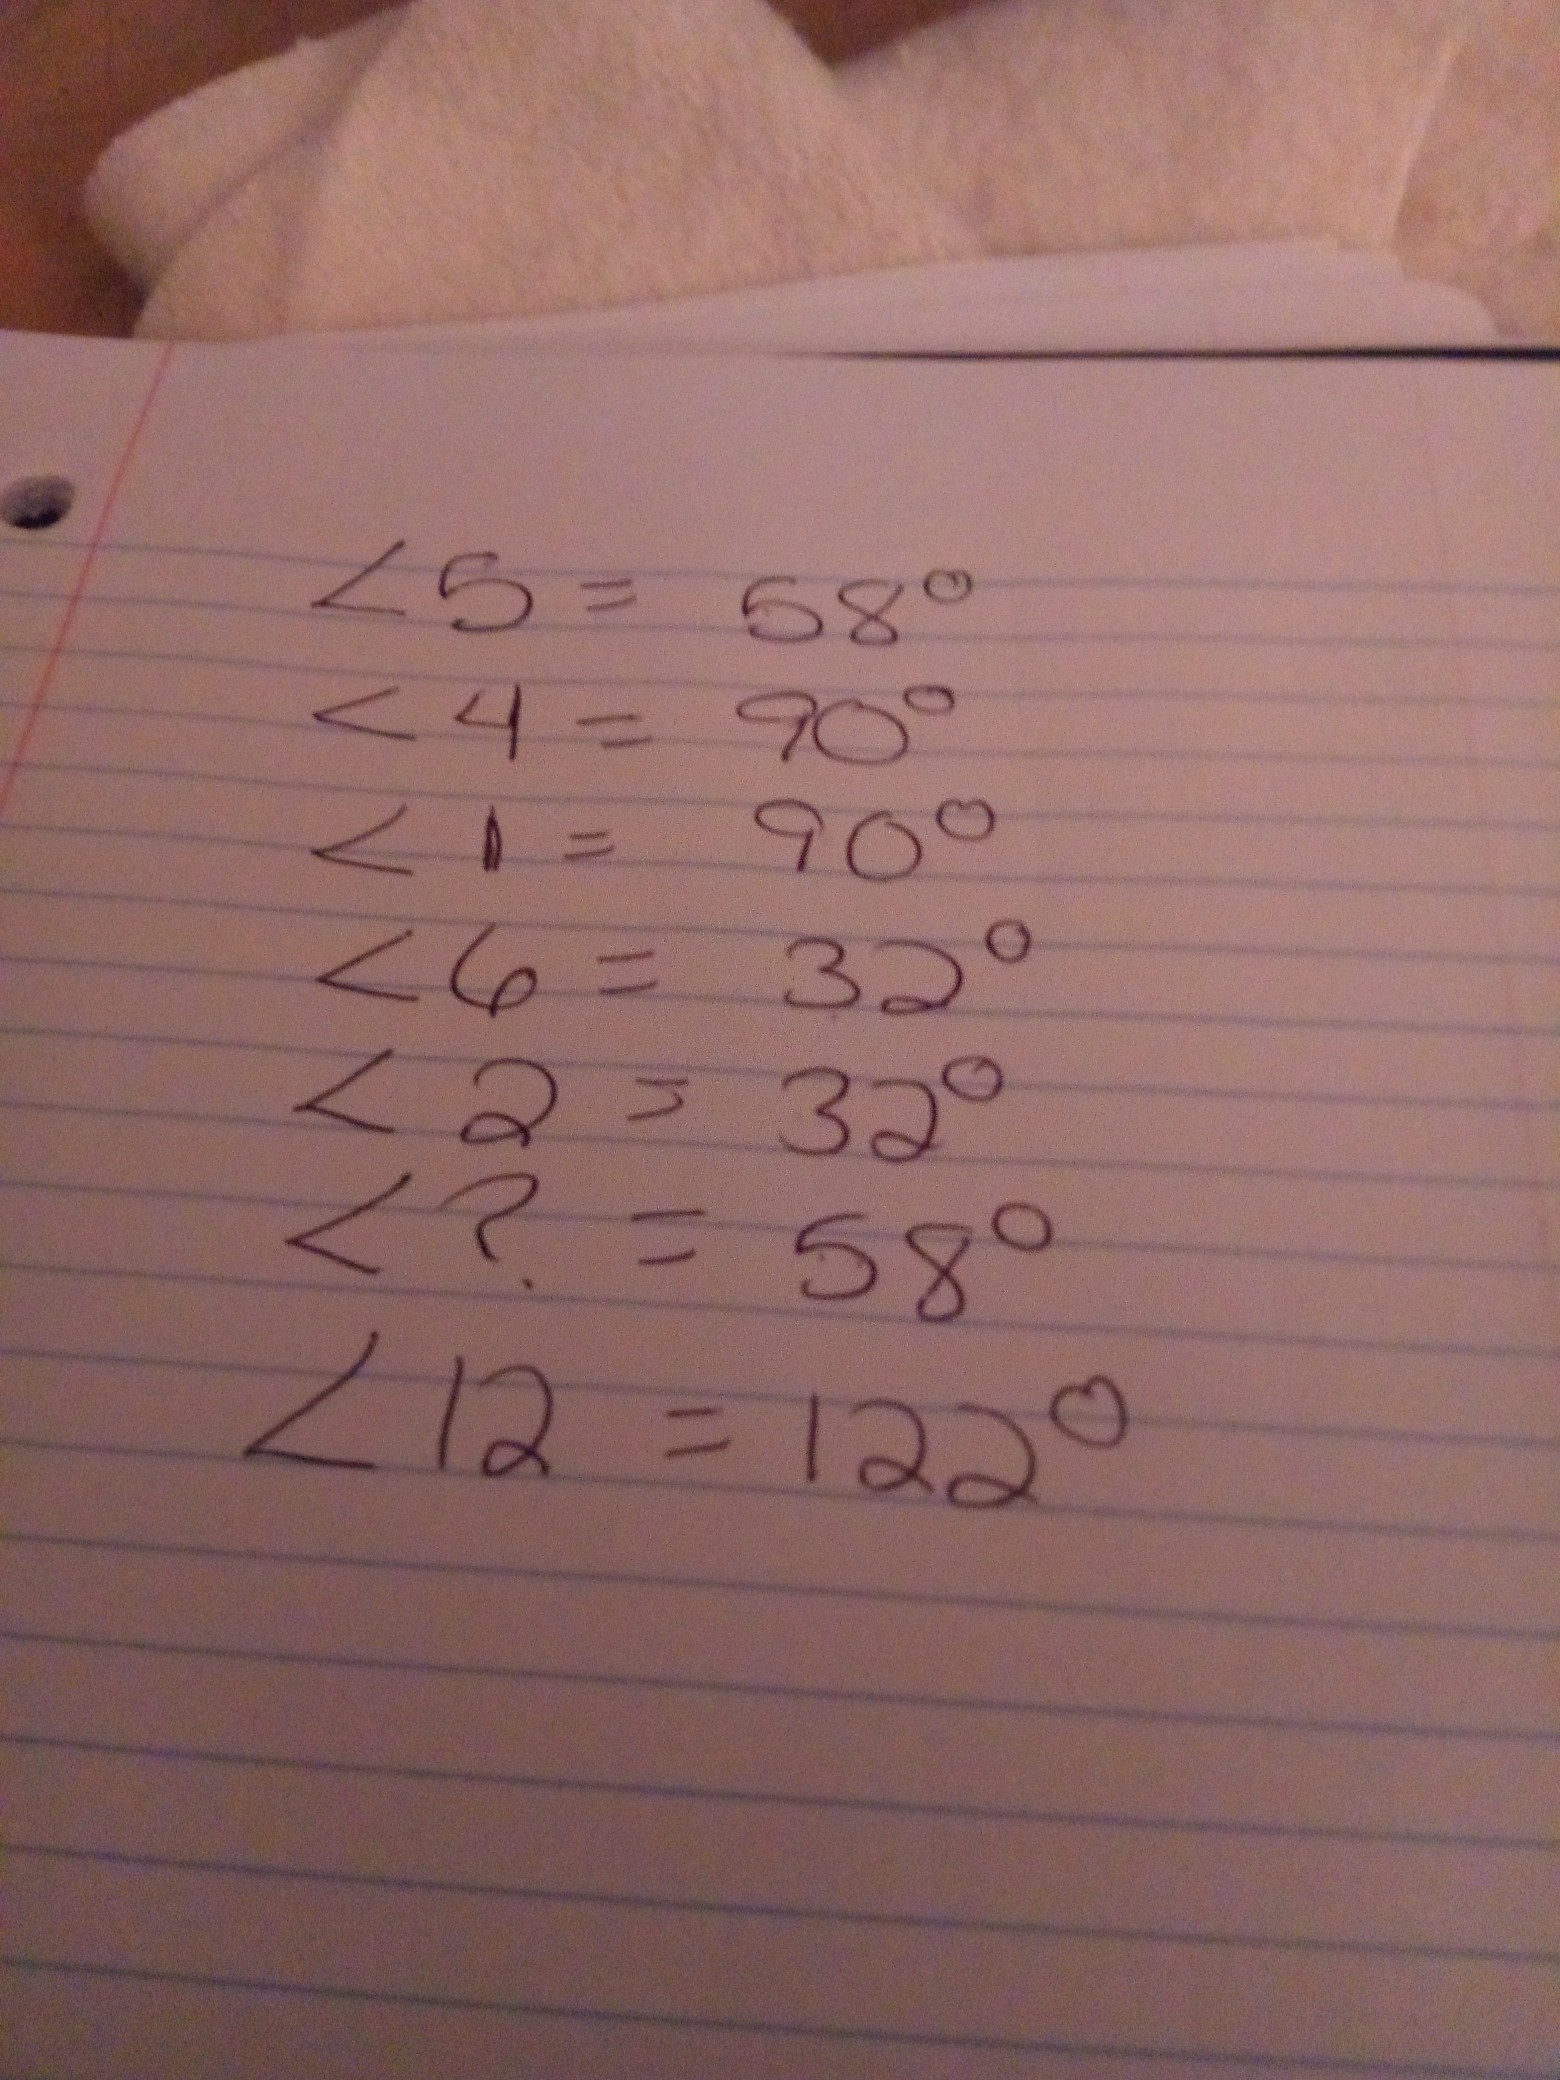 <5 = 58°
<4 = 90°
<1 = 90°
<6 = 32°
<2 = 32°
<? = 58°
<12 = 122°